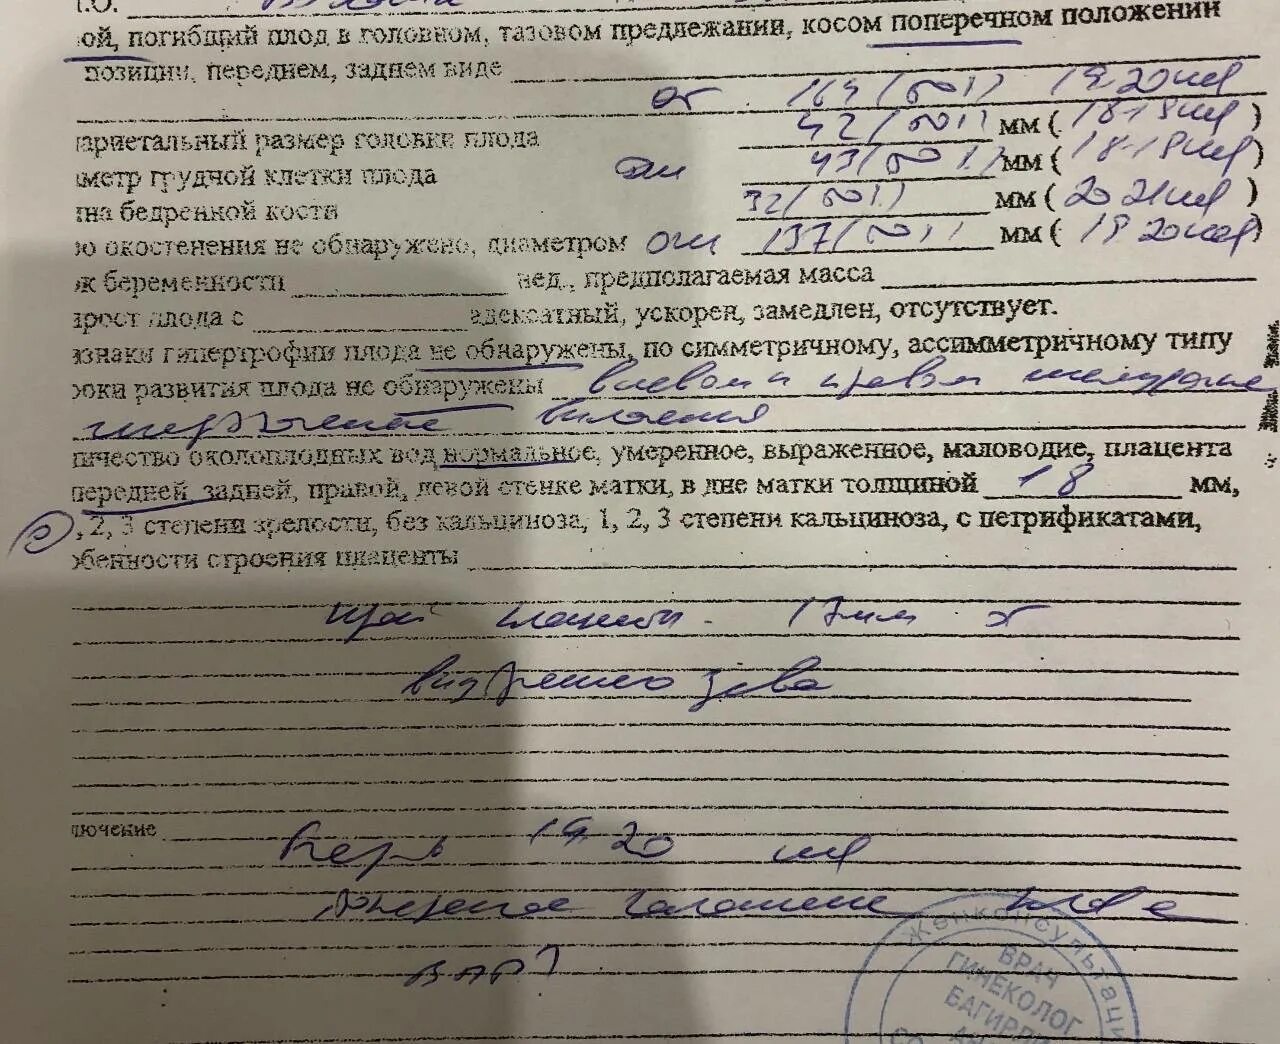 ой, погибщий плод в головном, тазовом предлежании, косом поперечном положении
позиции, переднем, заднем виде
ог 164 19 20 нед
париетальный размер головки плода 42 мм ( 18-18 нед )
метр грудной клетки плода 43 мм ( 18-18 нед )
на бедренной кости 32 мм ( 20 21 нед )
ю окостенения не обнаружено, диаметром ож 137 мм ( 19 20 нед )
ж беременности нед., предполагаемая масса
рост плода с адекватный, ускорен, замедлен, отсутствует.
изнаки гипертрофии плода не обнаружены, по симметричному, ассимметричному типу
роки развития плода не обнаружены в левом и правом желудочке
включения
личество околоплодных вод нормальное, умеренное, выраженное, маловодие, плацента
передней, задней, правой, левой стенке матки, в дне матки толщиной 18 мм,
0 , 2, 3 степени зрелости, без кальциноза, 1, 2, 3 степени кальциноза, с петрификатами,
обенности строения плаценты
край плаценты 17 мм от
внутреннего зева
лючение
Берем 19 20 нед
положение плода
ВАРТ
Женконсультаци
ВРАЧ
ГИНЕКОЛОГ
БАГИР